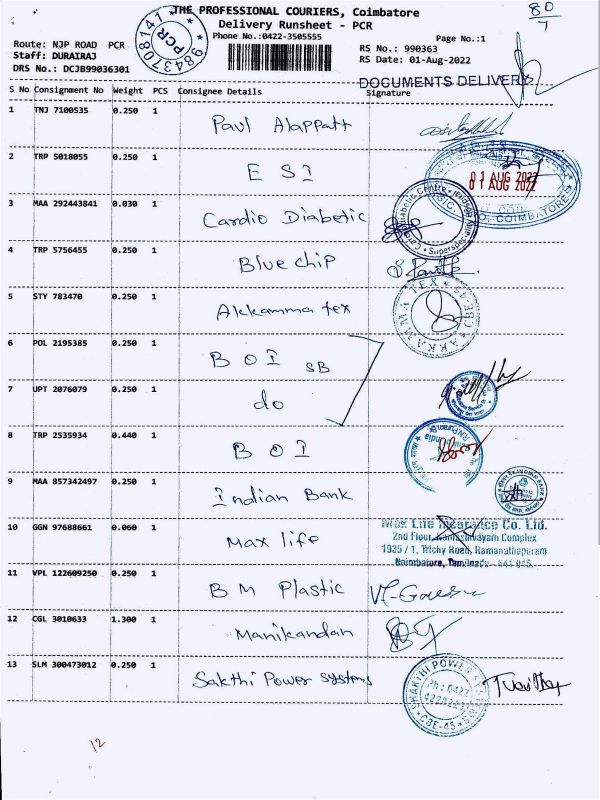 THE PROFESSIONAL COURIERS, Coimbatore
80
7
Delivery Runsheet - PCR
Phone No.:0422-3505555
9843708141 PCR
Page No.:1
Route: NJP ROAD PCR
RS No.: 990363
Staff: DURAIRAJ
RS Date: 01-Aug-2022
DRS No.: DCJB99036301
DOCUMENTS DELIVERY
S No Consignment No Weight PCS Consignee Details Signature
1 TNJ 7100535 0.250 1 Paul Alappatt
2 TRP 5018055 0.250 1 E S I
01 AUG 2022
01 AUG 2022
COIMBATORE
3 MAA 292443841 0.030 1 Cardio Diabetic
4 TRP 5756455 0.250 1 Blue chip
5 STY 783470 0.250 1 Akkamma tex
AKKAMMA TEX
6 POL 2195385 0.250 1 B O I SB
7 UPT 2076079 0.250 1 do
8 TRP 2535934 0.440 1 B O I
9 MAA 857342497 0.250 1 Indian Bank
10 GGN 97688661 0.060 1 Max life
Max Life Insurance Co. Ltd.
2nd Floor, Ramashivayam Complex
1935 / 1, Trichy Road, Ramanathapuram
Coimbatore, Tamilnadu - 641 045.
11 VPL 122609250 0.250 1 B M Plastic
12 CGL 3010633 1.300 1 Manikandan
13 SLM 300473012 0.250 1 Sakthi Power systems
SHAKTHI POWER
Ph : 0422
CBE-45
12